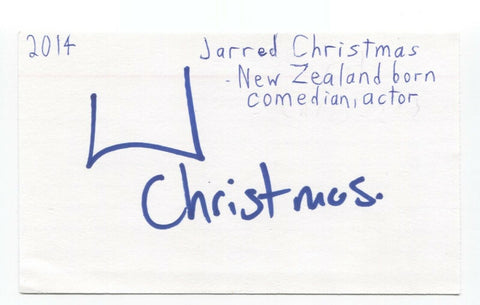 2014
Jarred Christmas
- New Zealand born
comedian, actor
Christmas.